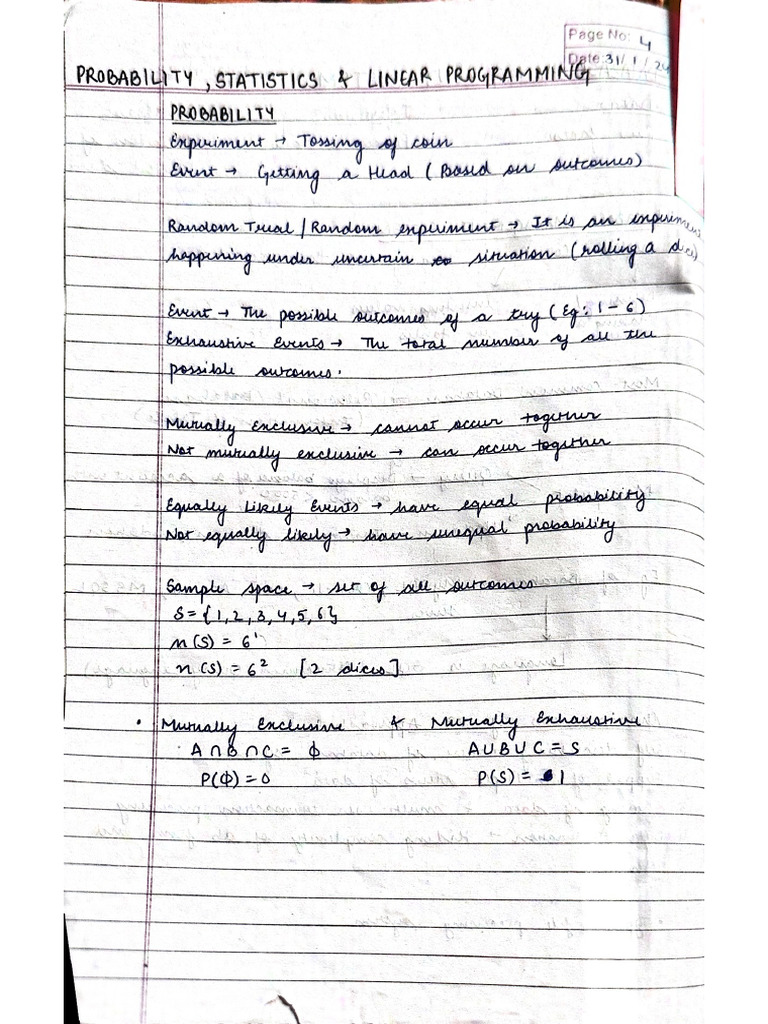 Page No: 4
Date: 31/1/24
PROBABILITY, STATISTICS & LINEAR PROGRAMMING
PROBABILITY
Experiment → Tossing of coin
Event → Getting a Head (Based on outcomes)
Random Trual / Random experiment → It is an experiment
happening under uncertain situation (rolling a dice)
Event → The possible outcomes of a try (Eg: 1 - 6)
Exhaustive Events → The total number of all the
possible outcomes.
Mutually Exclusive → cannot occur together
Not mutually exclusive → can occur together
Equally Likely Events → have equal probability
Not equally likely → have unequal probability
Sample space → set of all outcomes
S = {1, 2, 3, 4, 5, 6}
n(S) = 6¹
n(S) = 6² [2 dices]
• Mutually Exclusive & Mutually Exhaustive
A ∩ B ∩ C = ϕ A ∪ B ∪ C = S
P(ϕ) = 0 P(S) = 1